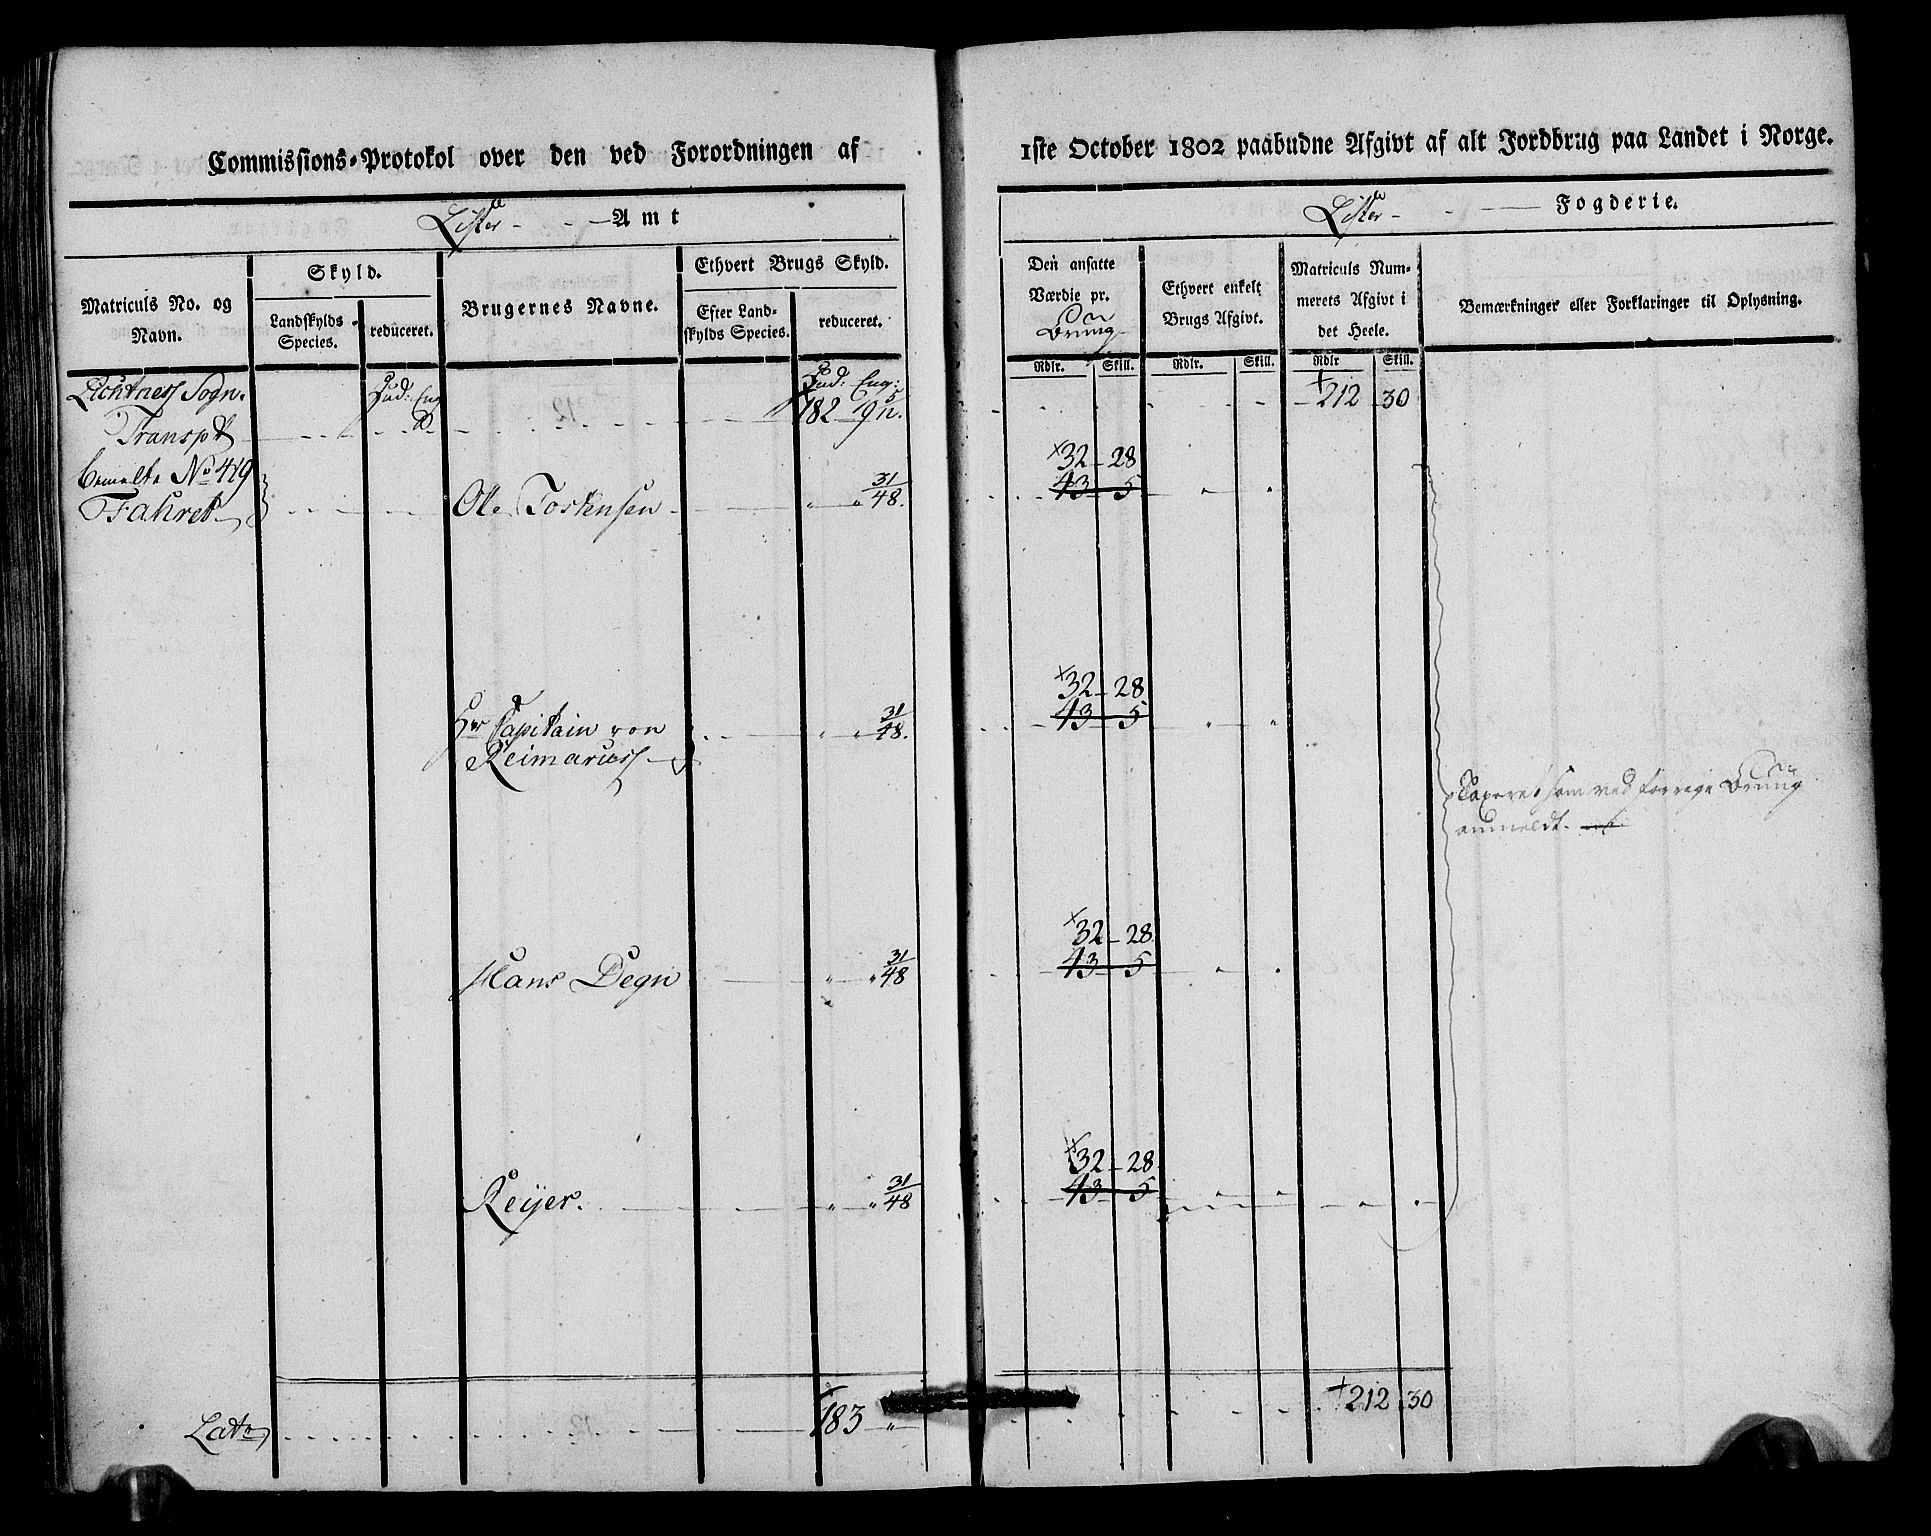 Commissions-Protokol over den ved Forordningen af
Lister Amt
Matriculs No. og Navn.
Skyld.
Landskylds Species.
reduceret.
Brugernes Navne.
Ethvert Brugs Skyld.
Efter Landskylds Species.
reduceret.
Sogn. Hud: Eng Hud: Eng:
Transpt 182 9
bemelte No 419
Fahret Ole Tostensen " " 31/48.
Hr Capitain von " " 31/48.
Reimaruss
Hans Degn " " 31/48
Reijer. " " 31/48
Lat 183 "
1ste October 1802 paabudne Afgivt af alt Jordbrug paa Landet i Norge.
Lister Fogderie.
Den ansatte Værdie pr. Brug
Ethvert enkelt Brugs Afgivt.
Matriculs Nummerets Afgivt i det Heele.
Bemærkninger eller Forklaringer til Oplysning.
Rdlr. Skill. Rdlr. Skill. Rdlr Skill.
212 30
32 28
43 5
32 28
43 5
Taxeret som ved forrige Brug
anmeldt.
32 28
43 5
32 28
43 5
212 30